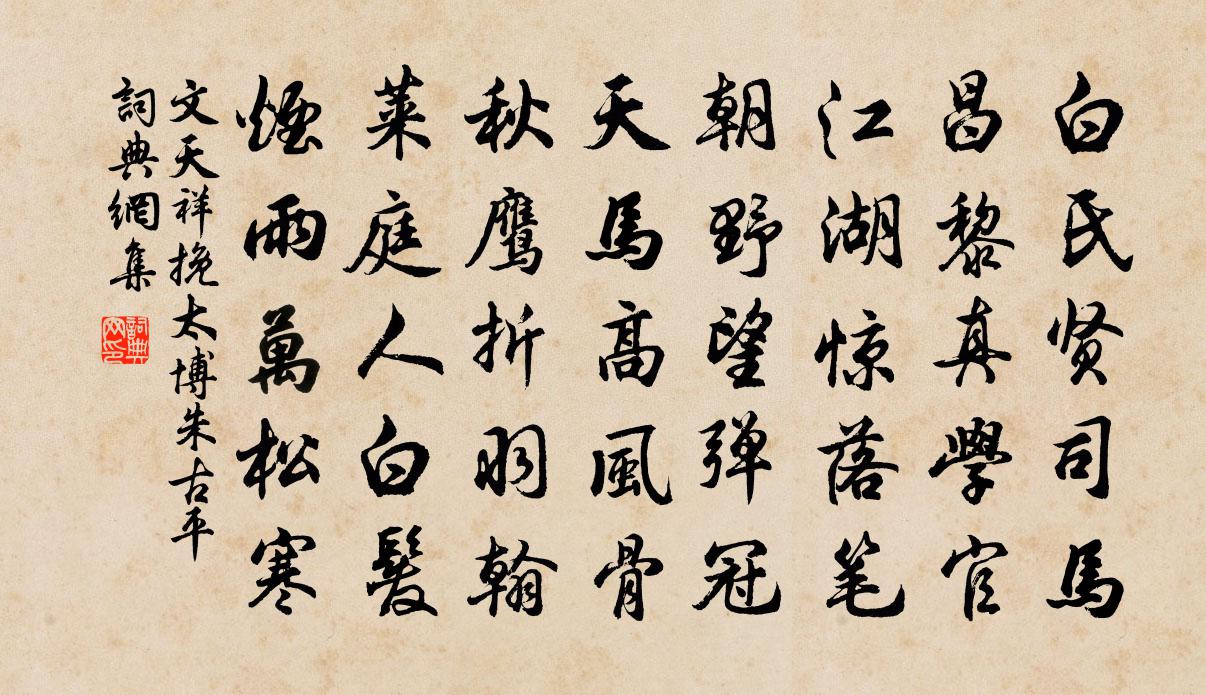 白氏贤司馬
昌黎真學官
江湖惊落笔
朝野望弹冠
天馬高風骨
秋鹰折羽翰
莱庭人白髮
煙雨萬松寒
文天祥挽太博朱古平
詞典網集
詞典网印